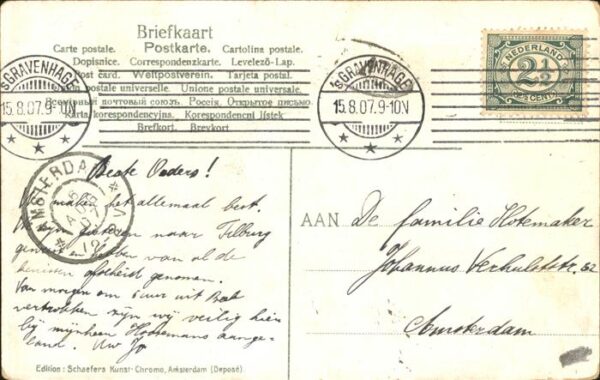 Briefkaart
Carte postale. Postkarte. Cartolina postale.
Dopisnice. Correspondenzkarte. Levelező-Lap.
Post card. Weltpostverein. Tarjeta postal.
Union postale universelle. Unione postale universale.
Всемирный почтовый союзъ. Россія. Открытое письмо
Karta korespondencyjna. Korespondenční lístek
Brefkort. Brevkort.
'S GRAVENHAGE
15.8.07.9-10N
'S GRAVENHAGE
15.8.07.9-10N
NEDERLAND
2½
CENT
AMSTERDAM
Beste Ouders!
We maken het allemaal best.
We zijn gisteren naar Tilburg
geweest en hebben van al de
kennissen afscheid genomen.
Van morgen om 6 uur uit
vertrokken zijn wij veilig hier
bij mijnheer Hoosemans aange-
land. Uw Jo
AAN De familie Hotemaker
Johannus Verhulststr. 52
Amsterdam
Edition: Schaefers Kunst-Chromo, Amsterdam (Deposé).